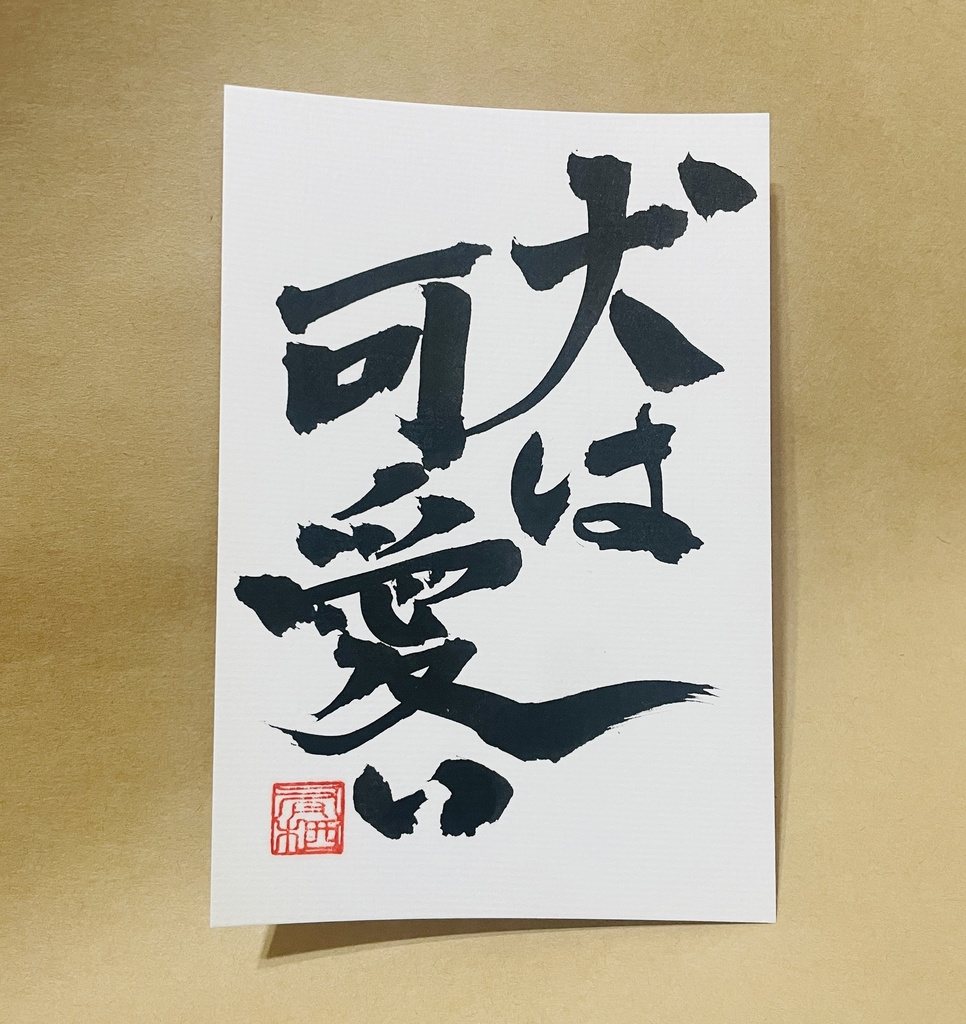 犬は
可愛い